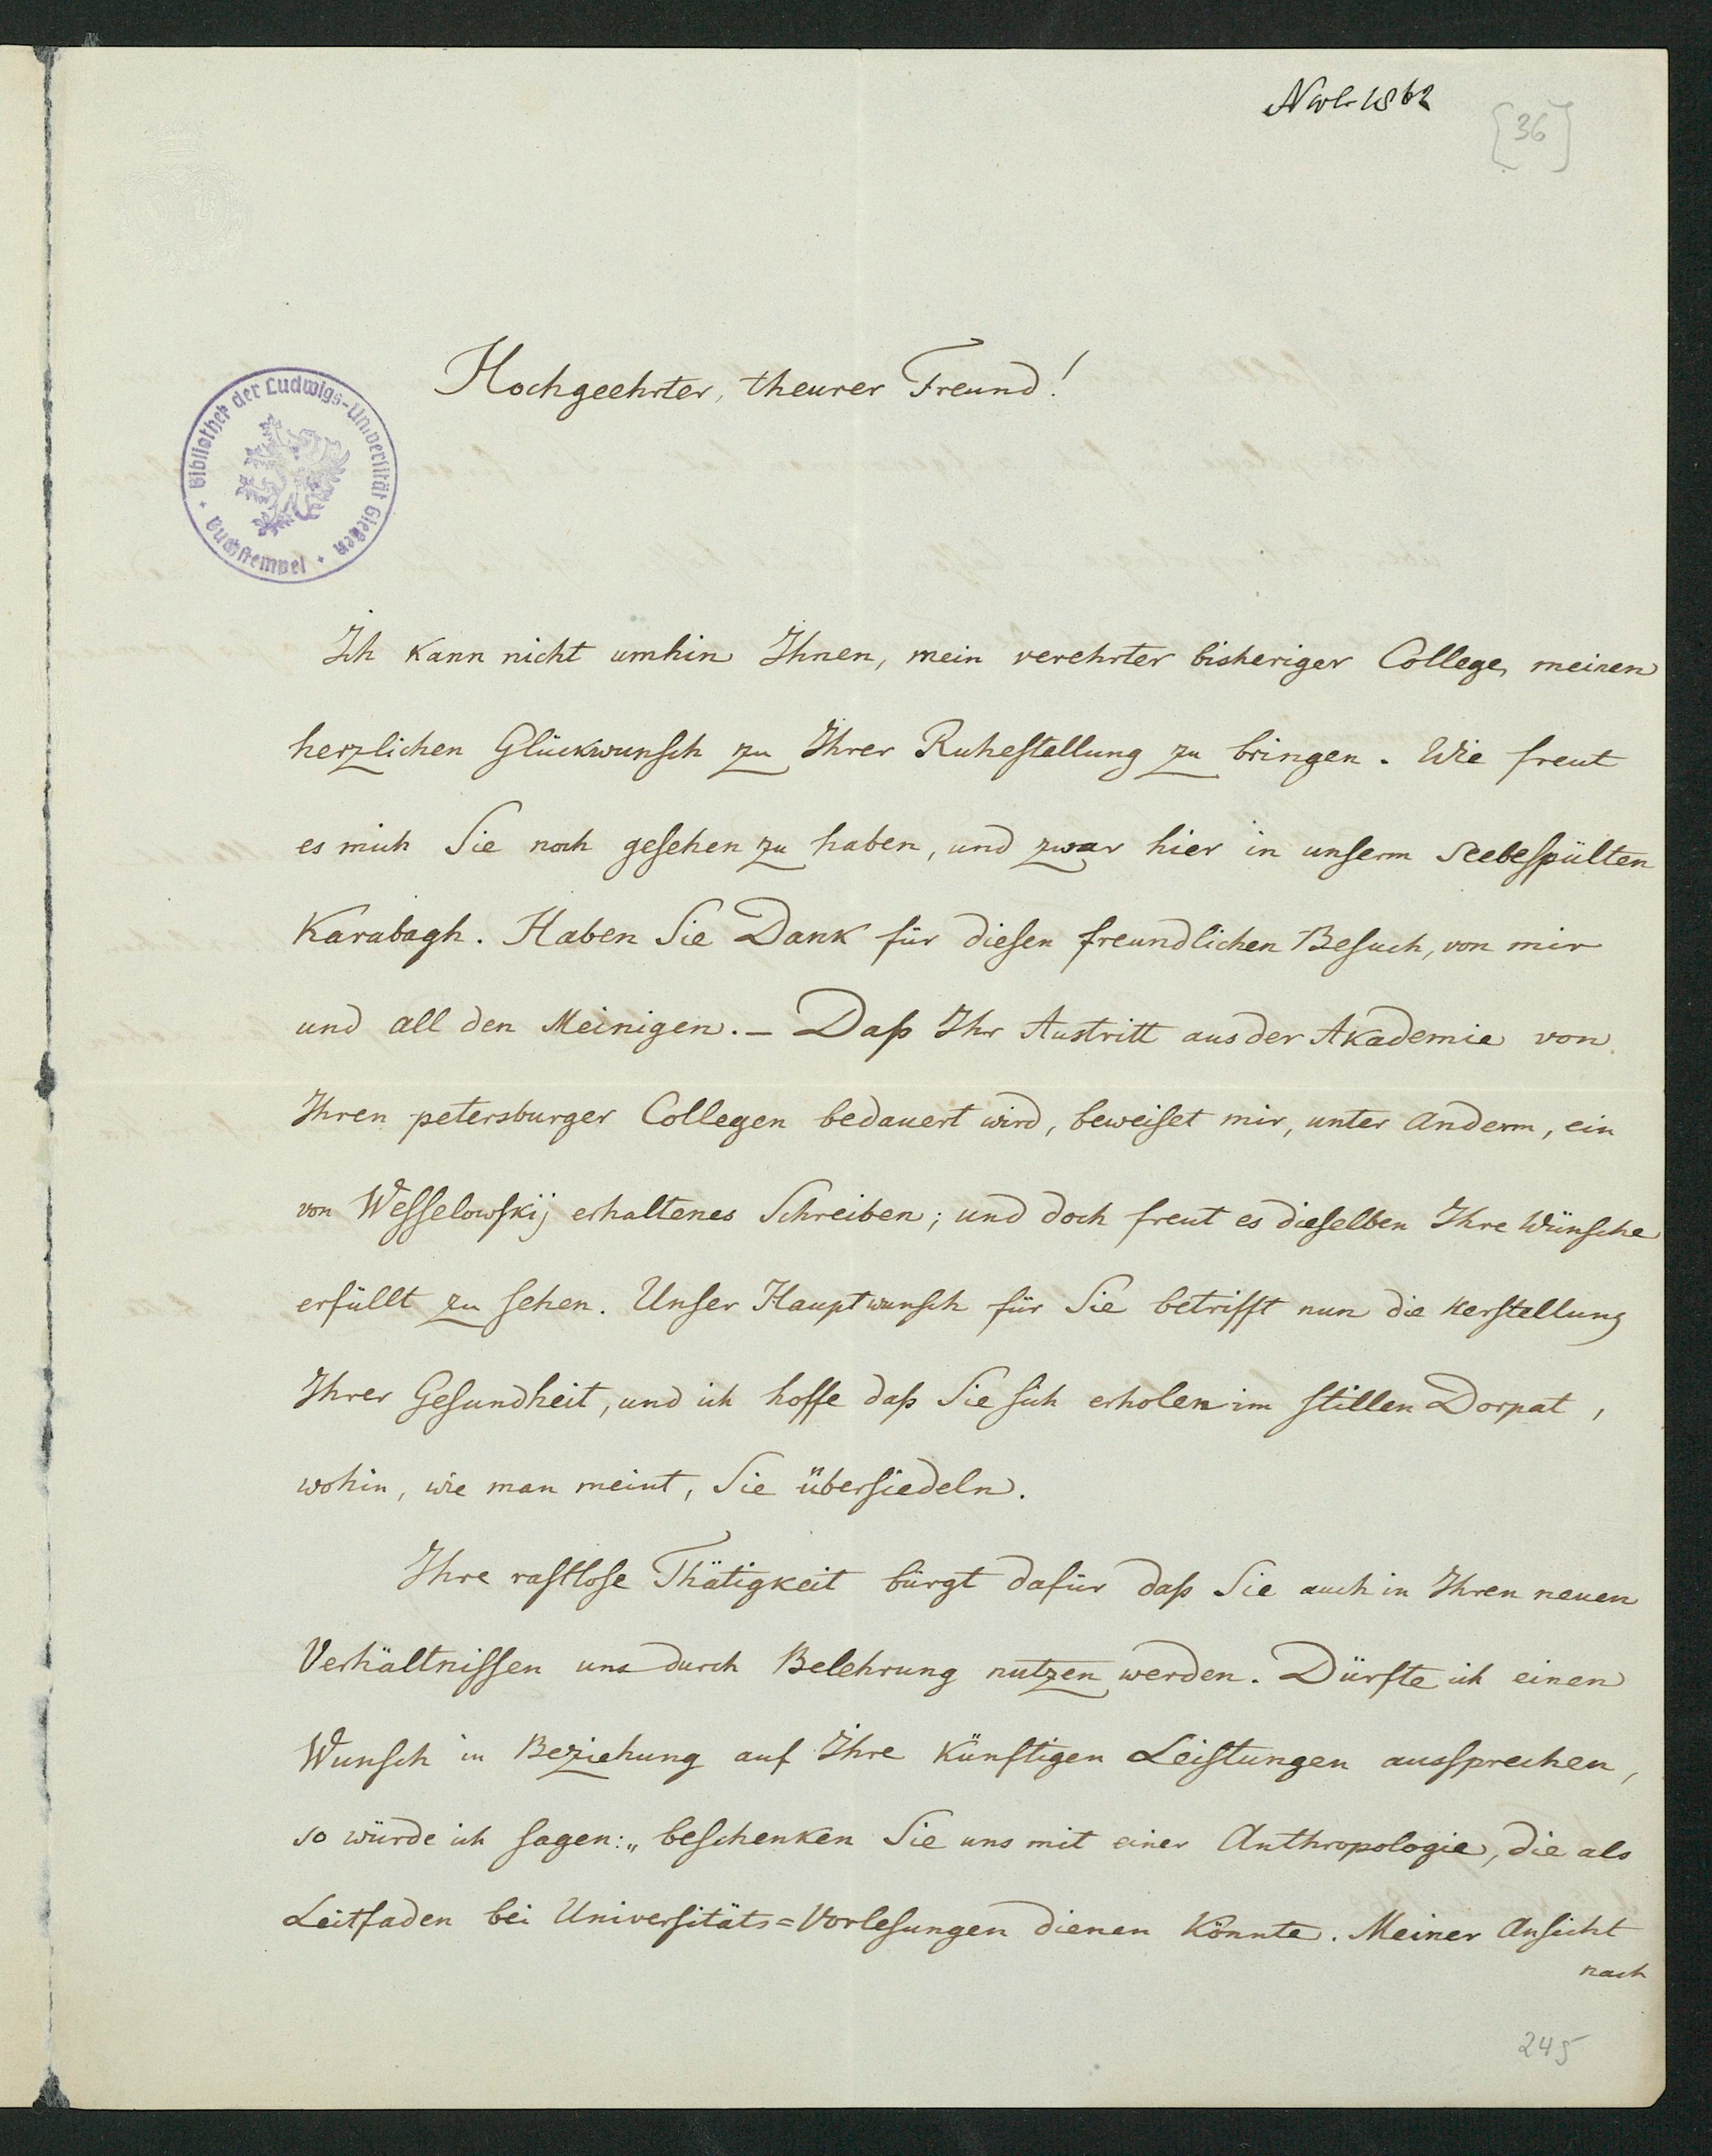 Nvbr 1862
[36]
Hochgeehrter, theurer Freund!
Bibliothek der Ludwigs-Universität Gießen
Buchstempel
Ich kann nicht umhin Ihnen, mein verehrter bisheriger College, meinen
herzlichen Glückwunsch zu Ihrer Ruhestellung zu bringen. Wie freut
es mich Sie noch gesehen zu haben, und zwar hier in unserm seebespülten
Karabagh. Haben Sie Dank für diesen freundlichen Besuch, von mir
und all den Meinigen. – Daß Ihr Austritt aus der Akademie von
Ihren petersburger Collegen bedauert wird, beweiset mir, unter Anderm, ein
von Wesselowskij erhaltenes Schreiben; und doch freut es dieselben Ihre Wünsche
erfüllt zu sehen. Unser Hauptwunsch für Sie betrifft nun die Herstellung
Ihrer Gesundheit, und ich hoffe daß Sie sich erholen im stillen Dorpat,
wohin, wie man meint, Sie übersiedeln.
Ihre rastlose Thätigkeit bürgt dafür daß Sie auch in Ihren neuen
Verhältnissen uns durch Belehrung nutzen werden. Dürfte ich einen
Wunsch in Beziehung auf Ihre künftigen Leistungen aussprechen,
so würde ich sagen: „beschenken Sie uns mit einer Anthropologie, die als
Leitfaden bei Universitäts=Vorlesungen dienen könnte. Meiner Ansicht
nach
245